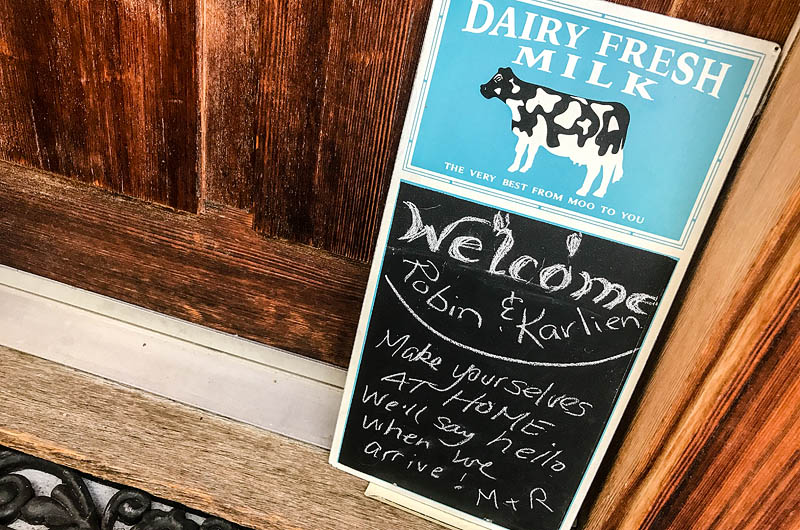 DAIRY FRESH
MILK
THE VERY BEST FROM MOO TO YOU
Welcome
Robin & Karlien
Make yourselves
AT HOME
We'll say hello
when we
arrive! M + R